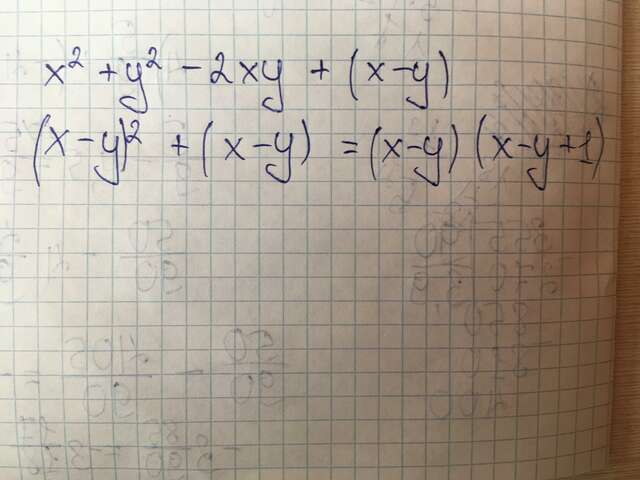 x² + y² - 2xy + (x-y)
(x-y)² + (x-y) = (x-y)(x-y+1)